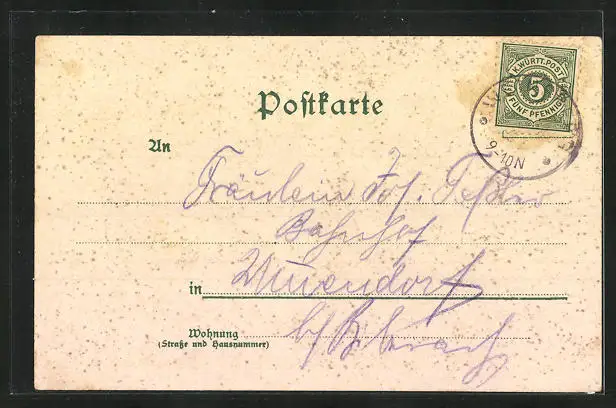 K. WÜRTT. POST
5
FÜNF PFENNIG
9-10N
Postkarte
An
Fräulein Jos.
Bahnhof
in
Wohnung
(Straße und Hausnummer)
b/Biberach